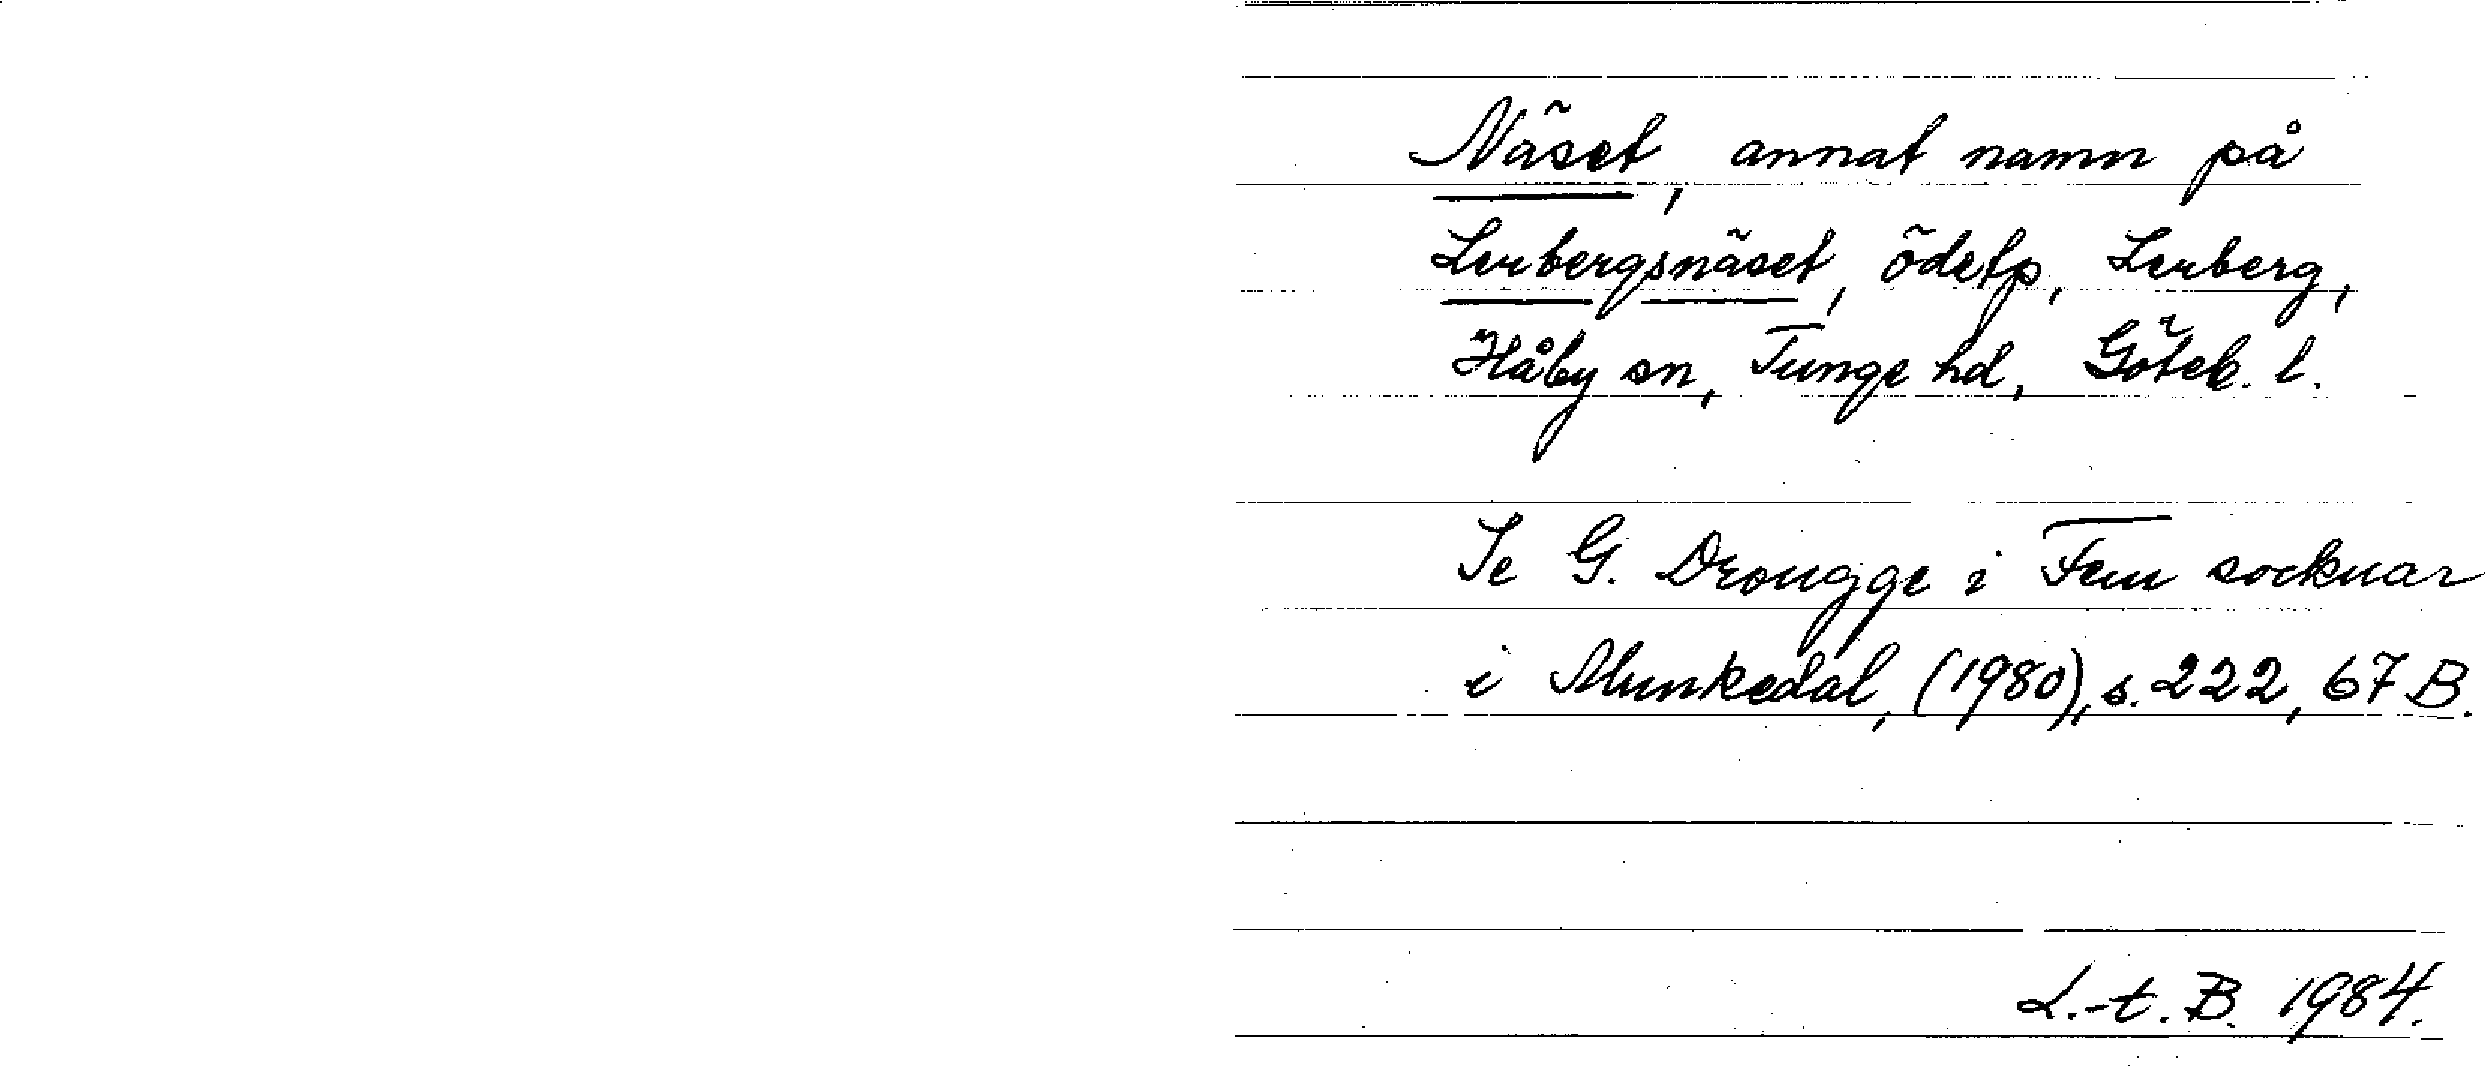 Näset, annat namn på
Lerbergsnäset, ödetp, Lerberg,
Håby sn, Tunge hd, Göteb. l.
Se G. Drougge i Fem socknar
i Munkedal, (1980), s. 222, 67 B.
L.-t. B. 1984.